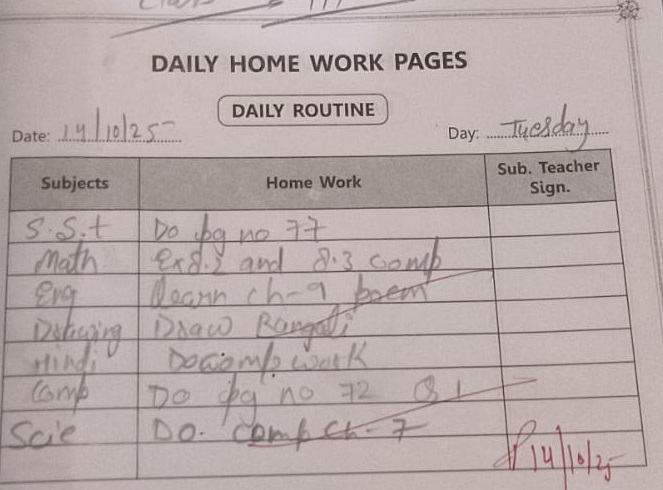 DAILY HOME WORK PAGES
DAILY ROUTINE
Date: 14/10/25 Day: Tuesday
Subjects Home Work Sub. Teacher Sign.
S.S.t Do pg no 77
Math Ex 8.2 and 8.3 comp
Eng learn ch-9 poem
Drawing Draw Rangoli
Hindi Do comp work
Comp Do pg no 72 Q1
Scie Do. comp ch-7
14/10/25